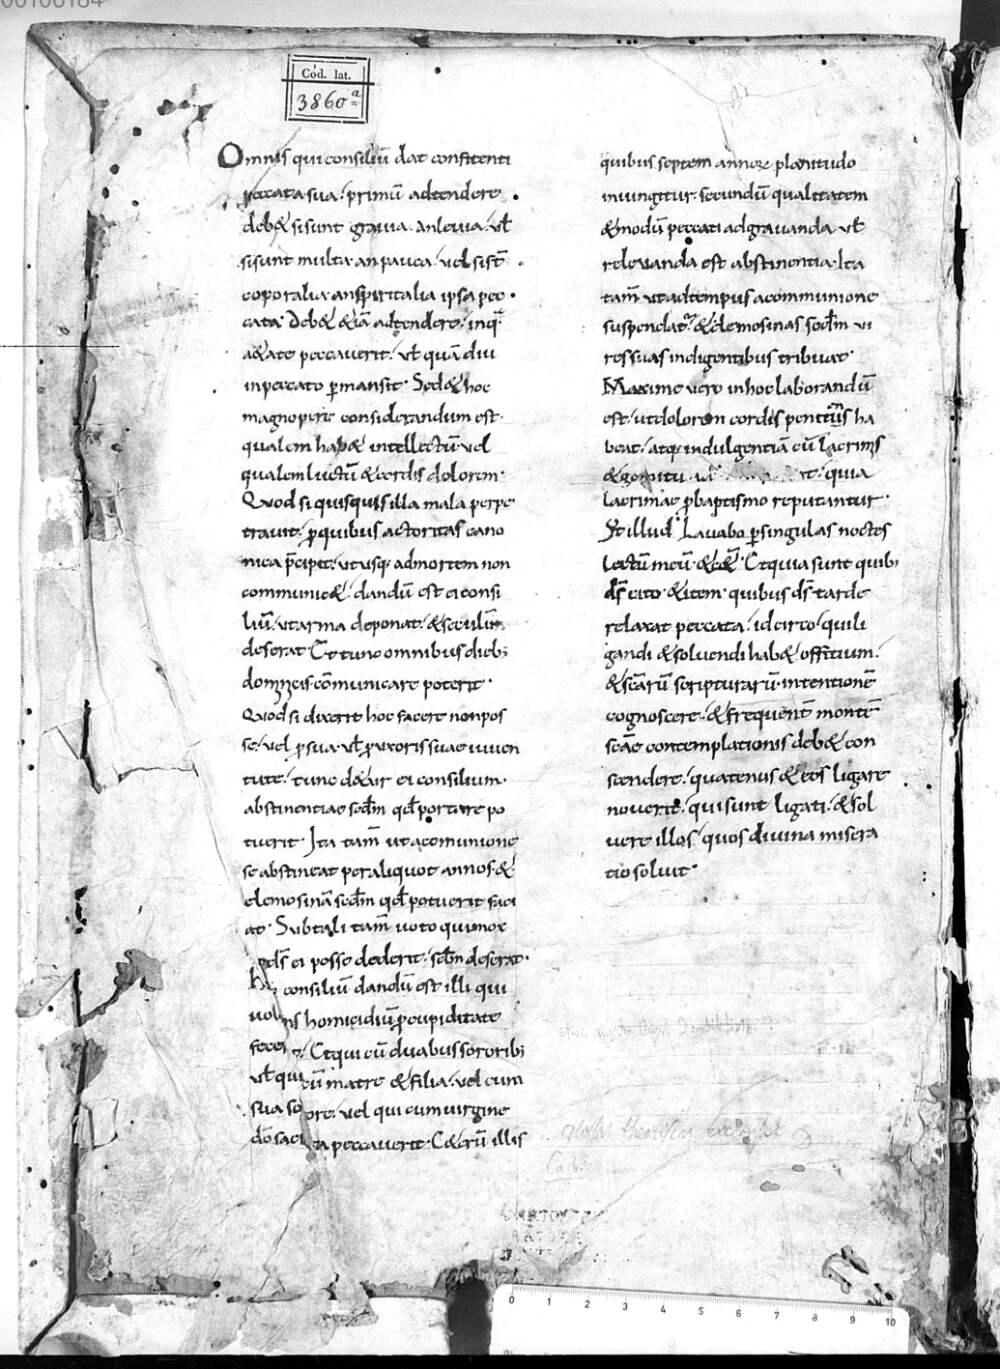 00106184
Cod. lat.
3860ᵃ
Omnis qui consiliū dat confitenti
peccata sua. primū adtendere
deb& si sunt grauia. an leuia. ul̄
si sunt multa. an pauca. uel si st̄
corporalia. an spiritalia ipsa pec
cata. Deb& &iā adtendere. in q̄
a&ate peccauerit. ul̄ quā diu
in peccato p̄mansit. Sed & hoc
magnopere considerandum est.
qualem hab& intellectū. uel
qualem luctū & cordis dolorem.
Quod si quisquis illa mala perpe
trauit. p̄ quibus actoritas cano
nica p̄cipit. ut usq; ad mortem non
communic&. dandū est ei consi
liū. ut arma deponat. & seculūm
deserat. Et tunc omnibus dieb;
dominicis cōmunicare poterit.
Quod si dixerit hoc facere non pos
se. uel p̄ sua. ul̄ p̄ uxoris suae iuuen
tute. tunc d&ur ei consilium.
abstinentiae scd̄m qd̄ portare po
tuerit. Ita tam̄ ut a comunione
se abstineat per aliquot annos. &
elemosinā scd̄m qd̄ potuerit faci
at. Sub tali tam̄ uoto qui mox
ds̄ ei posse dederit. sclm̄ deserat.
consiliū dandū est illi qui
uolens homicidiū p̄ cupiditate
fecerit. Et qui cū duabus sororib;
ul̄ qui cū matre & filia. uel cum
sua sorore. uel qui cum uirgine
dō sacrata peccauerit. C&erū illis
quibus septem annoꝝ plenitudo
iniungitur. secundū qualitatem
& modū peccati adgrauanda ul̄
releuanda est abstinentia. Ita
tam̄ ut ad tempus a communione
suspendat. & elemosinas scd̄m ui
res suas indigentibus tribuat.
Maxime uero in hoc laborandū
est. ut dolorem cordis penitens ha
beat. atq; indulgentiā cū lacrimis
& gemitu quia
lacrimae p̄ baptismo reputantur.
Ft illud. Lauabo p̄ singulas noctes
lectū meū. & c&̄. Et quia sunt quib;
ds̄ cito. & item quibus ds̄ tarde
relaxat peccata. idcirco qui li
gandi & soluendi hab& offitium.
& scārū scripturarū intentionē
cognoscere. & frequent̄ montē
scāe contemplationis deb& con
scendere. quatenus & eos ligare
nouerit. qui sunt ligati. & sol
uere illos. quos diuina misera
tio soluit.
0 1 2 3 4 5 6 7 8 9 10